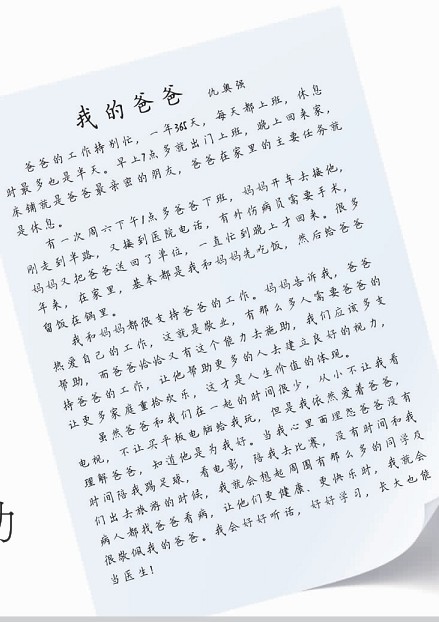 我的爸爸 仇奥强
爸爸的工作特别忙，一年365天，每天都上班，休息
时最多也是半天。早上7点多就出门上班，晚上回来家，
床铺就是爸爸最亲密的朋友，爸爸在家里的主要任务就
是休息。
有一次周六下午1点多爸爸下班，妈妈开车去接他，
刚走到半路，又接到医院电话，有外伤病员需要手术，
妈妈又把爸爸送回了单位，一直忙到晚上才回来。很多
年来，在家里，基本都是我和妈妈先吃饭，然后给爸爸
留饭在锅里。
我和妈妈都很支持爸爸的工作。妈妈告诉我，爸爸
热爱自己的工作，这就是敬业，有那么多人需要爸爸的
帮助，而爸爸恰恰又有这个能力去施助，我们应该多支
持爸爸的工作，让他帮助更多的人去建立良好的视力，
让更多家庭重拾欢乐，这才是人生价值的体现。
虽然爸爸和我们在一起的时间很少，从小不让我看
电视，不让买平板电脑给我玩，但是我依然爱着爸爸，
理解爸爸，知道他是为我好。当我心里面埋怨爸爸没有
时间陪我踢足球，看电影，陪我去比赛，没有时间和我
们出去旅游的时候，我就会想起周围有那么多的同学及
病人都找爸爸看病，让他们更健康、更快乐时，我就会
很敬佩我的爸爸。我会好好听话，好好学习，长大也能
当医生！